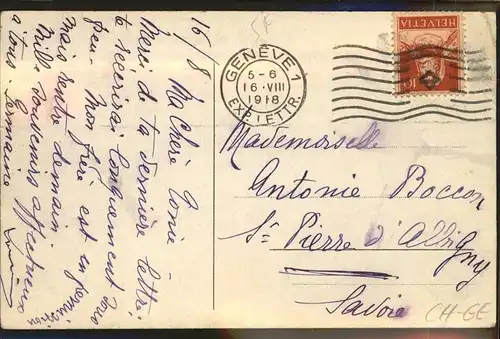 16/8
Ma chère Tonie
Merci de ta dernière lettre
te récrirai longuement sous
peu. Mon frère est en permission
mais rentre demain
Mille souvenirs affectueux
à tous. Germaine
GENÈVE 1
5-6
16·VIII
1918
EXP. LETTR.
HELVETIA
10
Mademoiselle
Antonie Boccon
St Pierre d'Albigny
Savoie
CH-GE